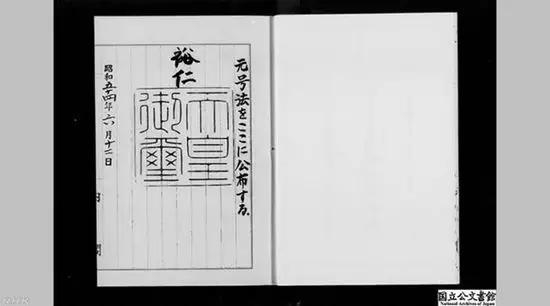 元号法をここに公布する。
裕仁
天皇
御璽
昭和五十四年六月十二日
内閣
国立公文書館
National Archives of Japan